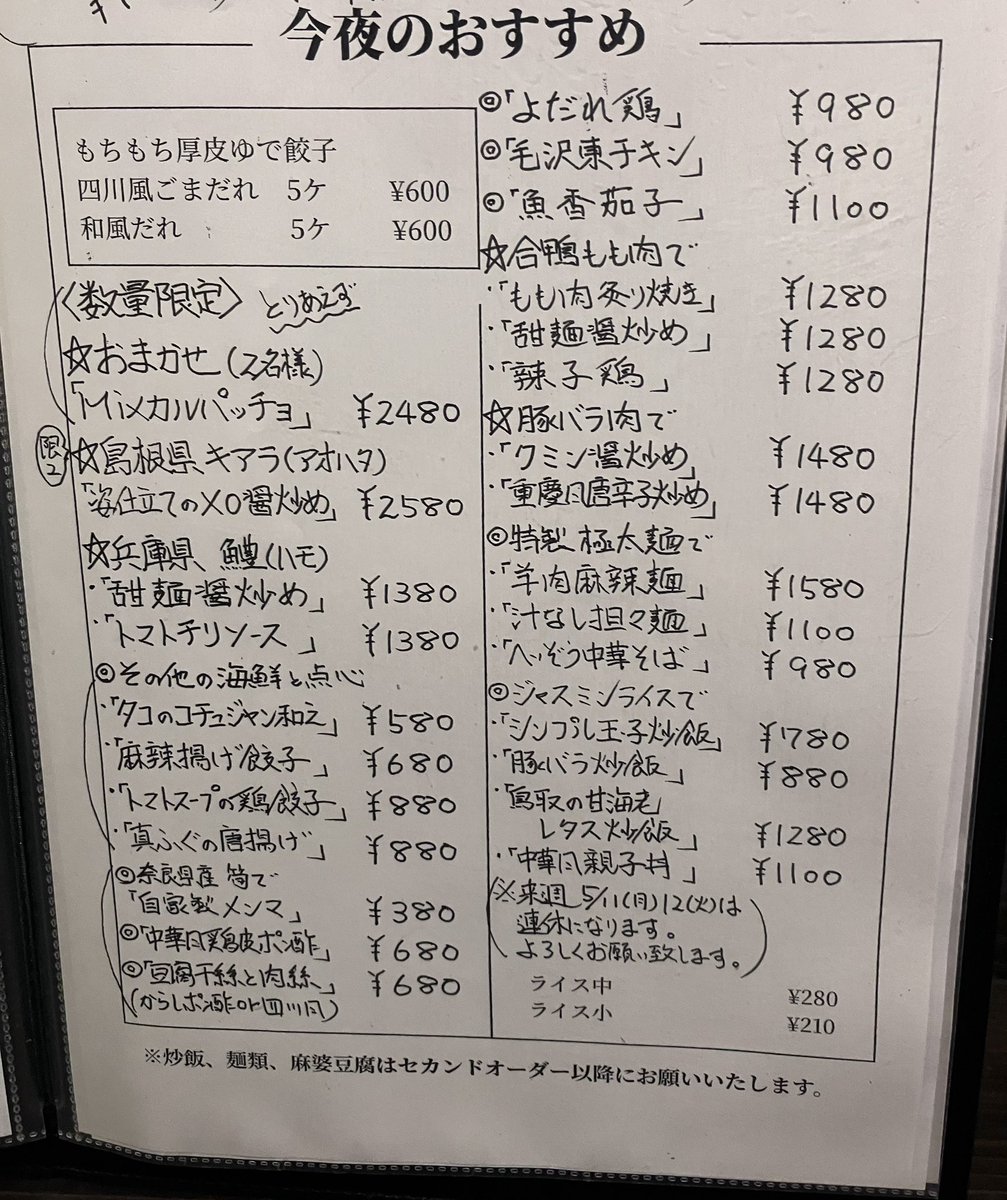 今夜のおすすめ
もちもち厚皮ゆで餃子
四川風ごまだれ 5ケ ¥600
和風だれ 5ケ ¥600
〈数量限定〉とりあえず
☆おまかせ(2名様)
「Mixカルパッチョ」 ¥2480
限2
☆島根県、キアラ(アオハタ)
「姿仕立てのXO醤炒め」 ¥2580
☆兵庫県、鱧(ハモ)
・「甜麺醤炒め」 ¥1380
・「トマトチリソース」 ¥1380
◎その他の海鮮と点心
・「タコのコチュジャン和え」 ¥580
・「麻辣揚げ餃子」 ¥680
・「トマトスープの鶏餃子」 ¥880
・「真ふぐの唐揚げ」 ¥880
◎奈良県産 筍で
「自家製メンマ」 ¥380
◎「中華風鶏皮ポン酢」 ¥680
◎「豆腐干絲と肉絲」 ¥680
(からしポン酢or四川風)
◎「よだれ鶏」 ¥980
◎「毛沢東チキン」 ¥980
◎「魚香茄子」 ¥1100
☆合鴨もも肉で
・「もも肉炙り焼き」 ¥1280
・「甜麺醤炒め」 ¥1280
・「辣子鶏」 ¥1280
☆豚バラ肉で
・「クミン醤炒め」 ¥1480
・「重慶風唐辛子炒め」 ¥1480
◎特製極太麺で
・「羊肉麻辣麺」 ¥1580
・「汁なし担々麺」 ¥1100
・「へいぞう中華そば」 ¥980
◎ジャスミンライスで
・「シンプル玉子炒飯」 ¥780
・「豚バラ炒飯」 ¥880
・「鳥取の甘海老
レタス炒飯」 ¥1280
・「中華風親子丼」 ¥1100
(※来週 5/11(月)12(火)は
連休になります。
よろしくお願い致します。)
ライス中 ¥280
ライス小 ¥210
※炒飯、麺類、麻婆豆腐はセカンドオーダー以降にお願いいたします。